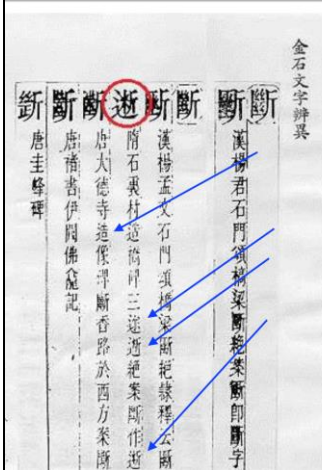 金石文字辨異
斷
漢楊君石門頌橋梁斷絕案斷即斷字
斷
漢楊孟文石門頌橋梁斷絕隸釋云斷
逝
隋石裏村造橋碑三途逝絕案斷作逝
斷
唐大德寺造像碑斷香路於西方案斷
斷
唐褚書伊闕佛龕記
唐圭峰碑